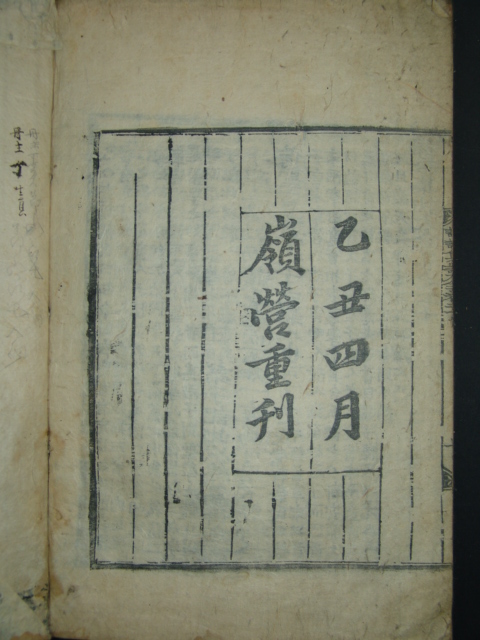 乙丑四月
嶺營重刊